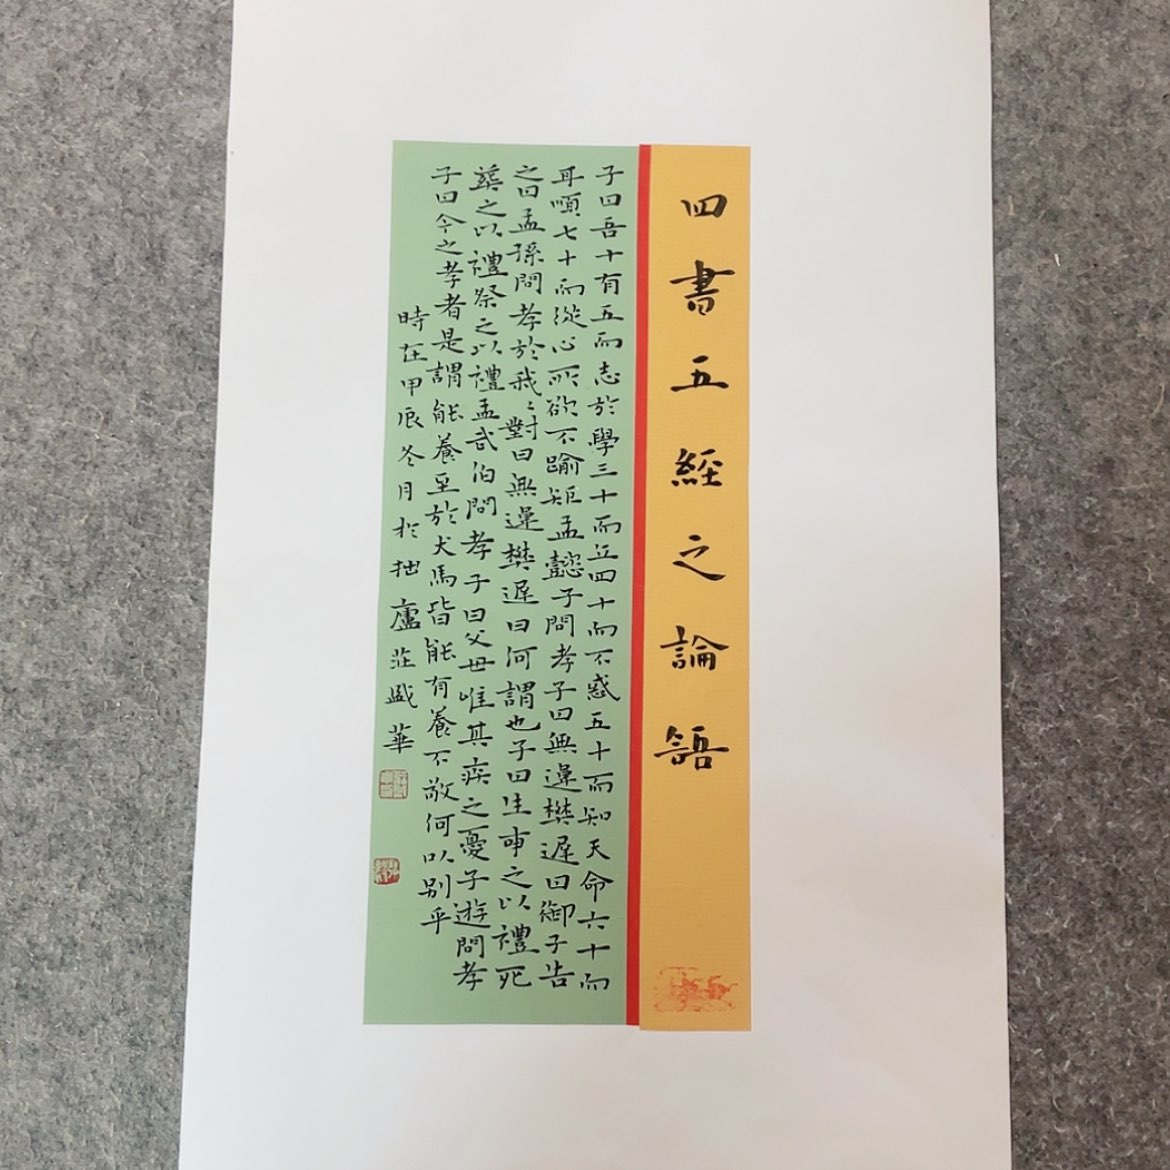 四書五經之論語
子曰吾十有五而志於學三十而立四十而不惑五十而知天命六十而
耳順七十而從心所欲不踰矩孟懿子問孝子曰無違樊遲曰御子告
之曰孟孫問孝於我〻對曰無違樊遲曰何謂也子曰生事之以禮死
葬之以禮祭之以禮孟武伯問孝子曰父母唯其疾之憂子游問孝
子曰今之孝者是謂能養至於犬馬皆能有養不敬何以別乎
時在甲辰冬月於拙廬莊盛華